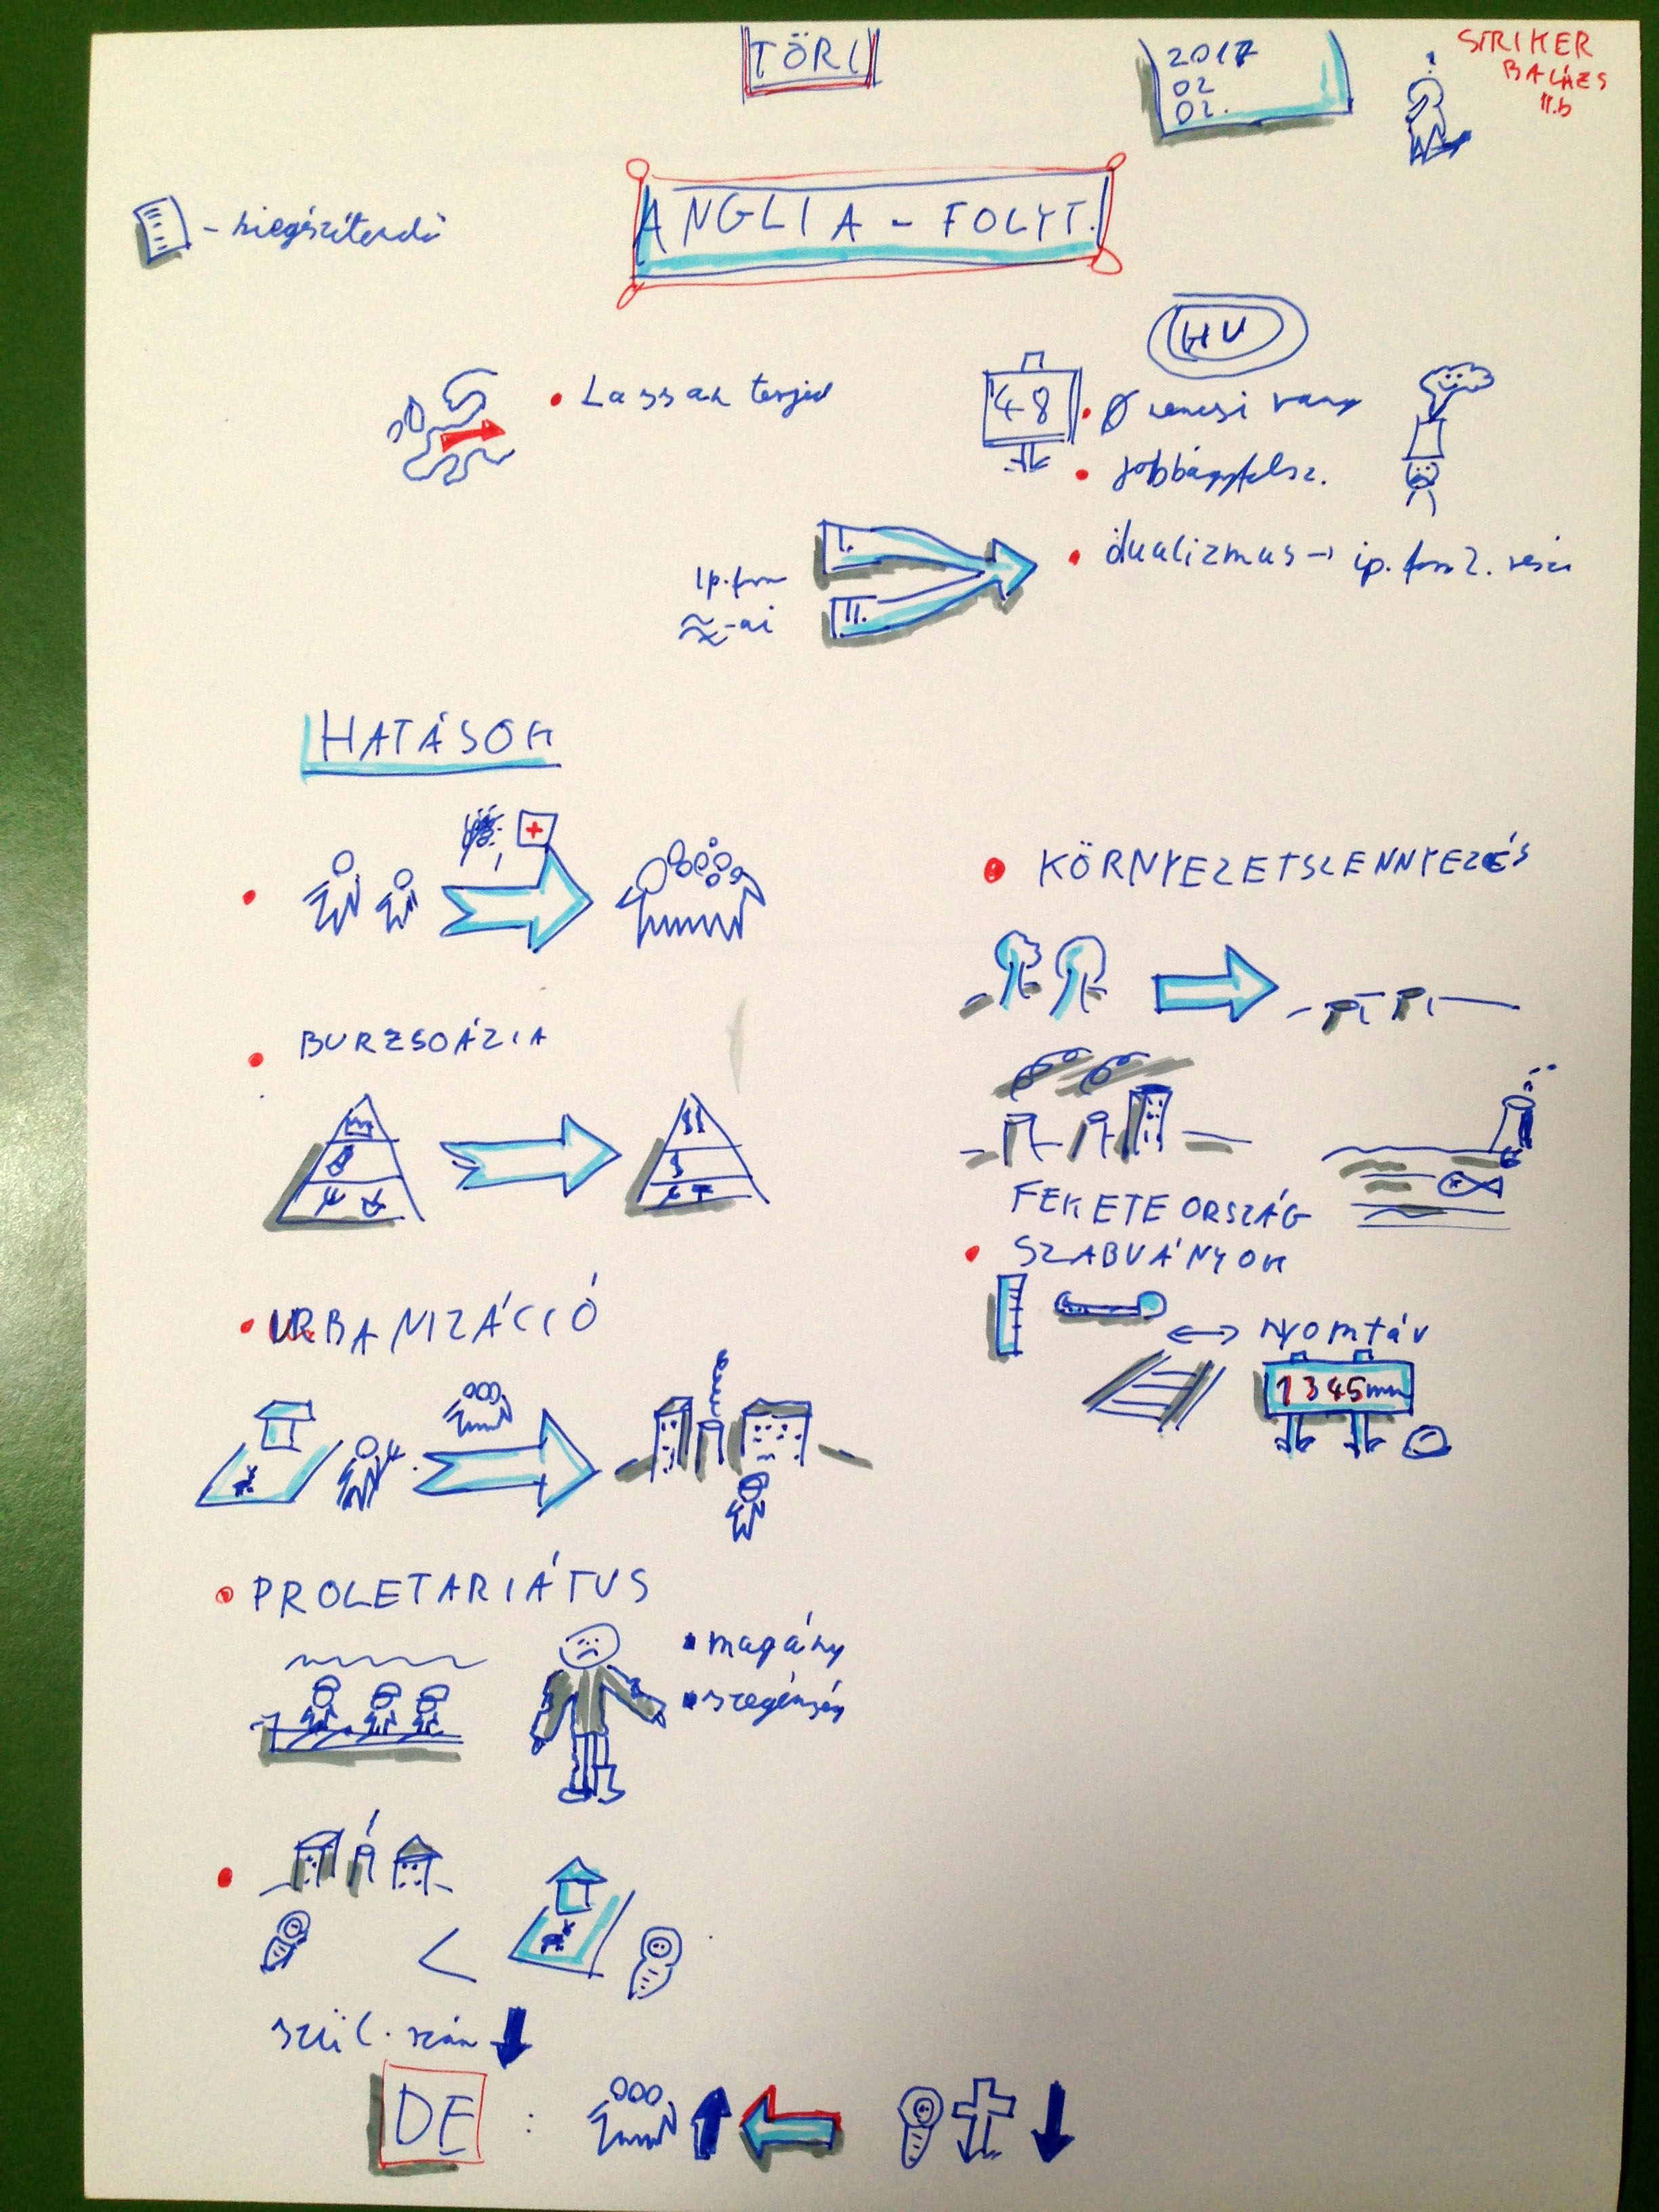 TÖRI
2017
02
02.
STRIKER
BALÁZS
11.b
- kiegészítendő
ANGLIA - FOLYT.
HU
• Lassan terjed
48
• Ø nemesi
• jobbágyfelsz.
Ip.forr
-ai
I.
II.
• dualizmus → ip. forr 2. része
HATÁSOK
• KÖRNYEZETSZENNYEZÉS
• BURZSOÁZIA
FEKETE ORSZÁG
• SZABVÁNYOK
• URBANIZÁCIÓ
↔ nyomtáv
1345mm
• PROLETARIÁTUS
• magány
• szegénység
<
szül. szám ↓
DE :